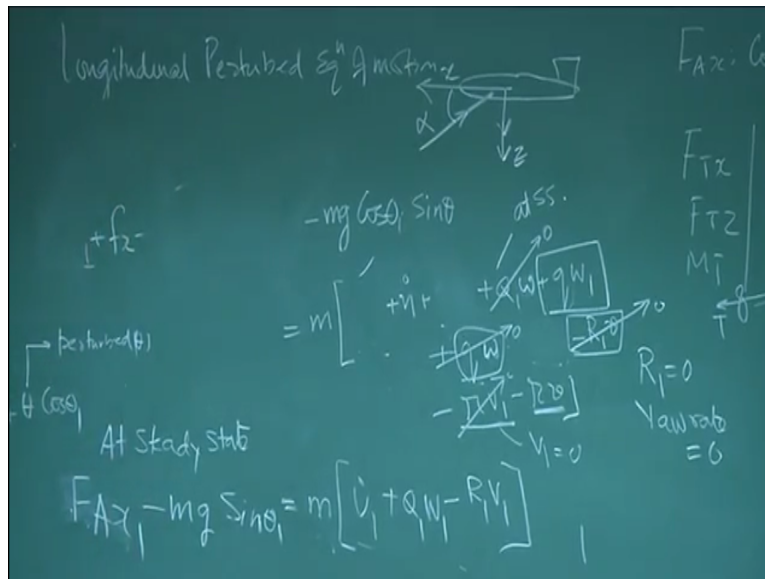 Longitudinal Perturbed Eqⁿ of motion
x
α
z
F_Ax :
F_Tx
F_Tz
M_T
T
-mg Cosθ₁ Sinθ
at ss.
₁ + f₂ -
= m[ + u̇ + + Q₁w + qW₁
0
+ qw
0
- R₁v
0
- rV₁ - rv ]
V₁ = 0
R₁ = 0
Yaw rate
= 0
→ perturbed(θ)
+ θ Cosθ₁
At Steady State
F_Ax₁ - mg Sinθ₁ = m[ U̇₁ + Q₁W₁ - R₁V₁ ]